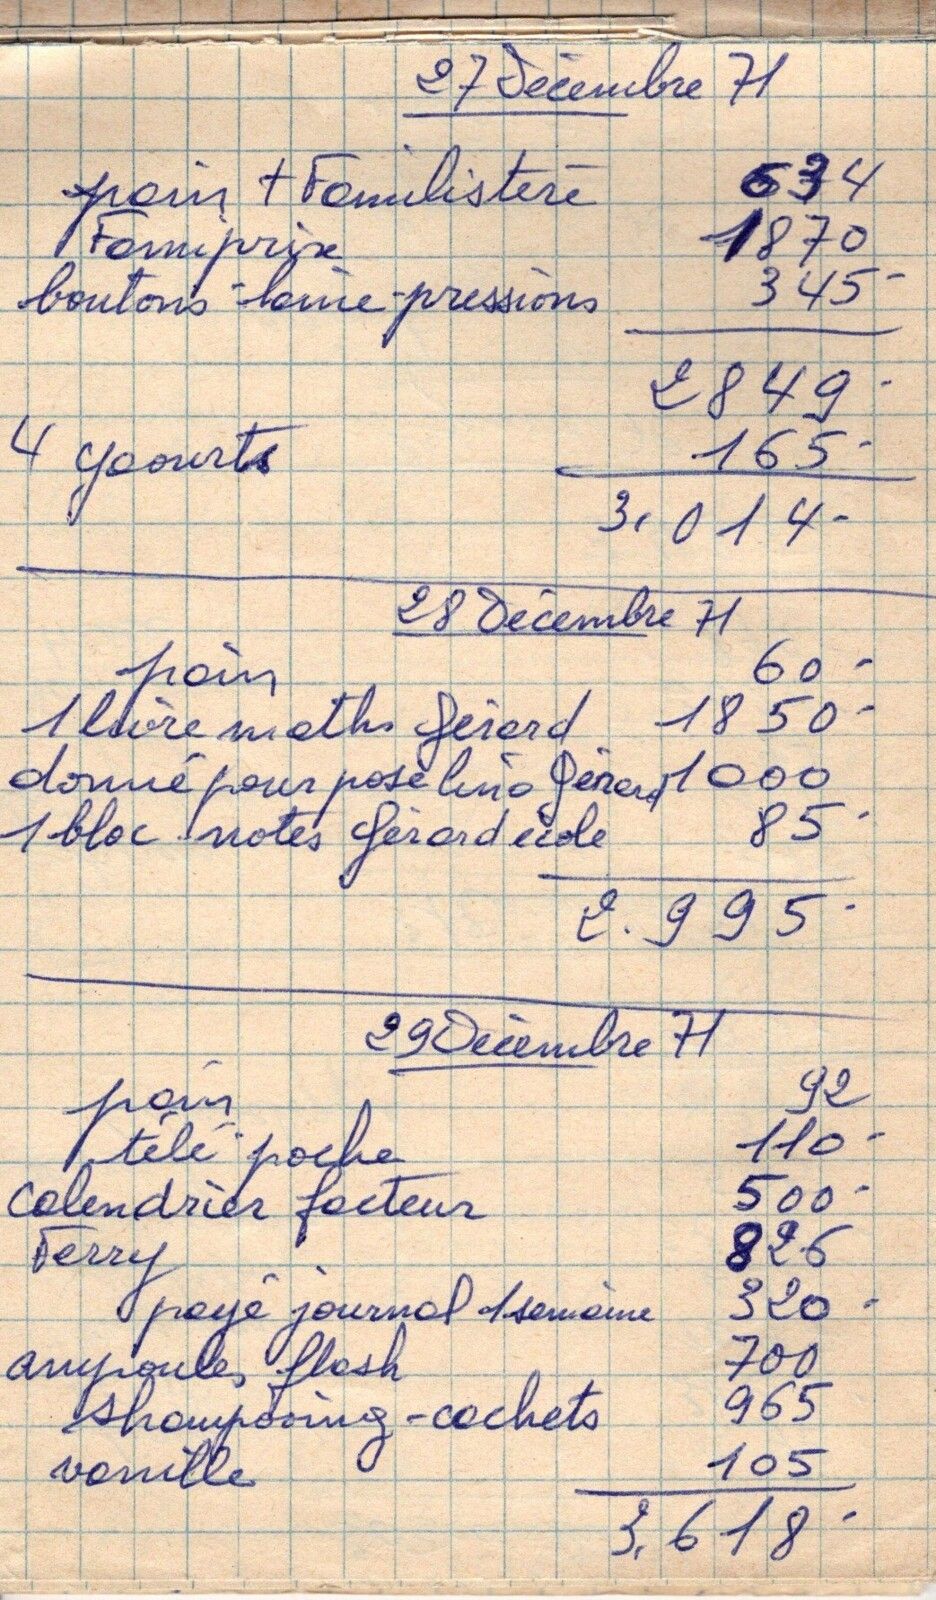 27 Décembre 71
pain + Familistère 634
Famiprix 1870
boutons-laine-pressions 345-
2849-
4 yaourts 165-
3.014-
28 Décembre 71
pain 60-
1 livre maths Gérard 1850-
donné pour pose lino Gérard 1000
1 bloc notes Gérard école 85-
2.995-
29 Décembre 71
pain 92
télé poche 110-
calendrier facteur 500-
Ferry 826
payé journal 1 semaine 320-
ampoules flash 700
shampooing-cachets 965
vanille 105
3.618-